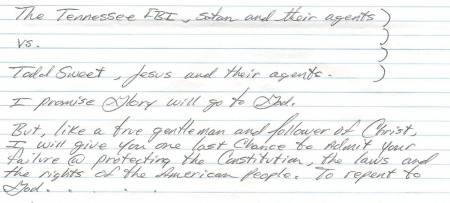 The Tennessee FBI, Satan and their agents )
vs. )
)
Todd Sweet, Jesus and their agents. )
I promise Glory will go to God.
But, like a true gentleman and follower of Christ,
I will give you one last Chance to Admit your
failure @ protecting the Constitution, the laws and
the rights of the American people. To repent to
God. . . . . .